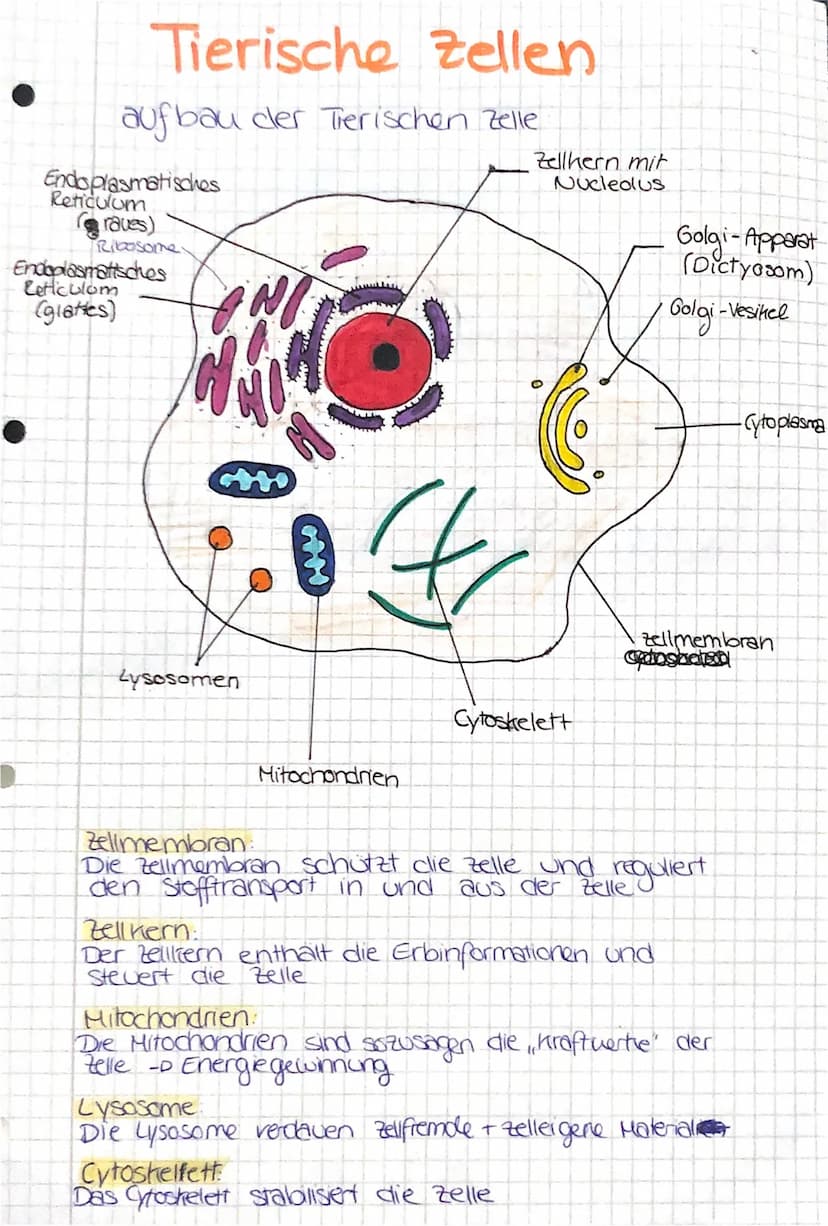 Tierische Zellen
aufbau der Tierischen Zelle
Endoplasmatisches
Reticulum
(raues)
Ribosome
Endoplasmatisches
Reticulum
(glattes)
Zellkern mit
Nucleolus
Golgi-Apparat
(Dictyosom)
Golgi-Vesikel
Cytoplasma
Zellmembran
Lysosomen
Cytoskelett
Mitochondrien
Zellmembran:
Die Zellmembran schützt die Zelle und reguliert
den Stofftransport in und aus der Zelle
Zellkern:
Der Zellkern enthält die Erbinformationen und
steuert die Zelle
Mitochondrien:
Die Mitochondrien sind sozusagen die „Kraftwerke" der
Zelle → Energiegewinnung
Lysosome
Die Lysosome verdauen zellfremde + zelleigene Material
Cytoskelett:
Das Cytoskelett stabilisert die Zelle